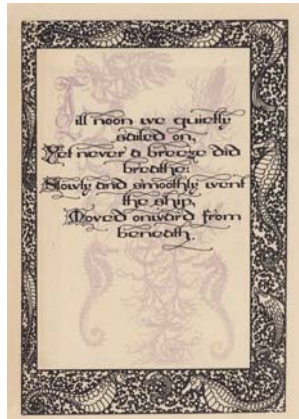 Till noon we quietly
sailed on,
Yet never a breeze did
breathe:
Slowly and smoothly went
the ship,
Moved onward from
beneath.